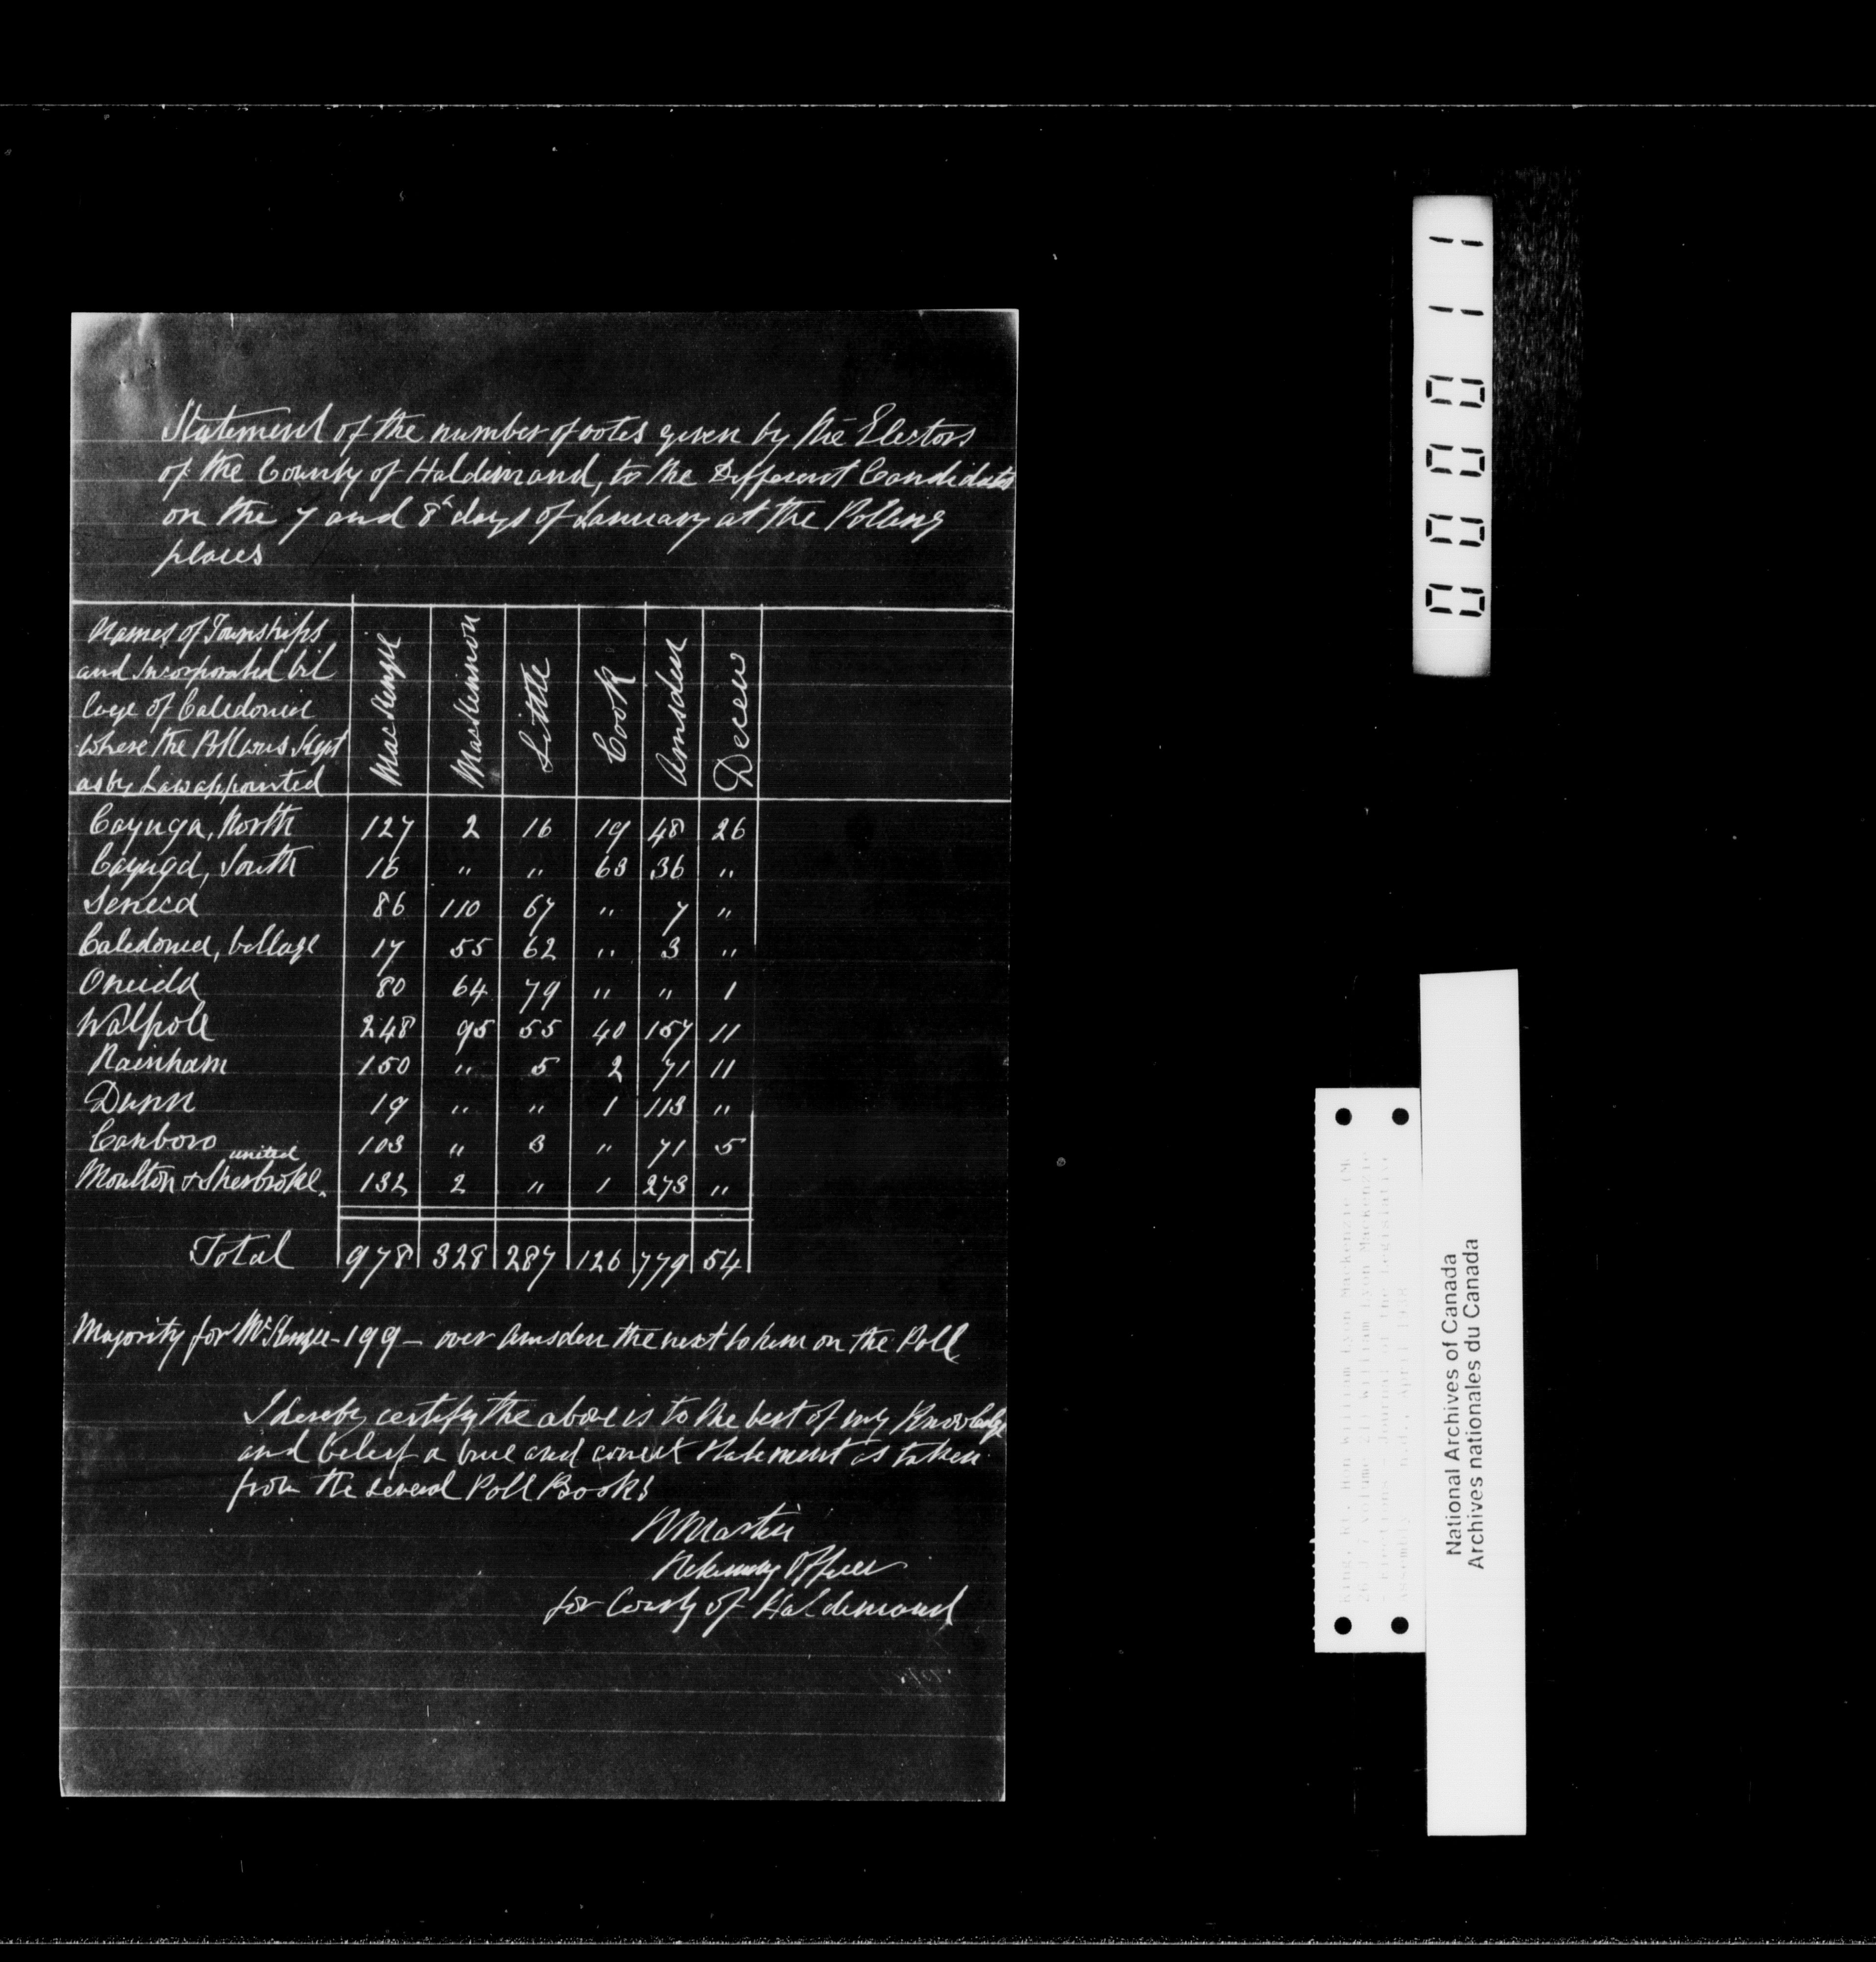 Statement of the number of votes given by the Electors
of the County of Haldimand, to the Different Candidates
on the 7 and 8th days of January at the Polling
places
Names of Townships
and Incorporated vil
lage of Caledonia
where the Poll was Kept
as by Law appointed
MacKenzie MacKinnon Little Cook Amsden Decew
Cayuga, North 127 2 16 19 48 26
Cayuga, South 16 " " 63 36 "
Seneca 86 110 67 " 7 "
Caledonia, village 17 55 62 " 3 "
Oneida 80 64 79 " " 1
Walpole 248 95 55 40 157 11
Rainham 150 " 5 2 71 11
Dunn 19 " " 1 113 "
Canboro 103 " 3 " 71 5
Moulton & Sherbroke united 132 2 " 1 273 "
Total 978 328 287 126 779 54
Majority for McKenzie - 199 - over Amsden the next to him on the Poll
I hereby certify the above is to the best of my Knowledge
and belief a true and correct statement as taken
from the several Poll Books
R Martin
Returning Officer
for County of Haldimand
000011
King, Rt. Hon William Lyon Mackenzie (M
26 J 7 volume 21) William Lyon Mackenzie
: Elections - Journal of the Legislative
Assembly n.d., April 1108
National Archives of Canada
Archives nationales du Canada